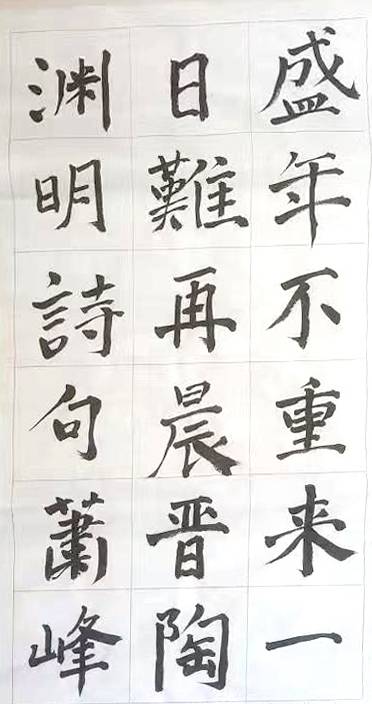 盛年不重来一
日難再晨晋陶
渊明詩句蕭峰